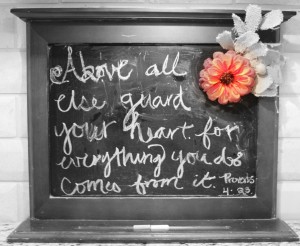 Above all
else guard
your heart for
everything you do
comes from it. Proverbs
4:23